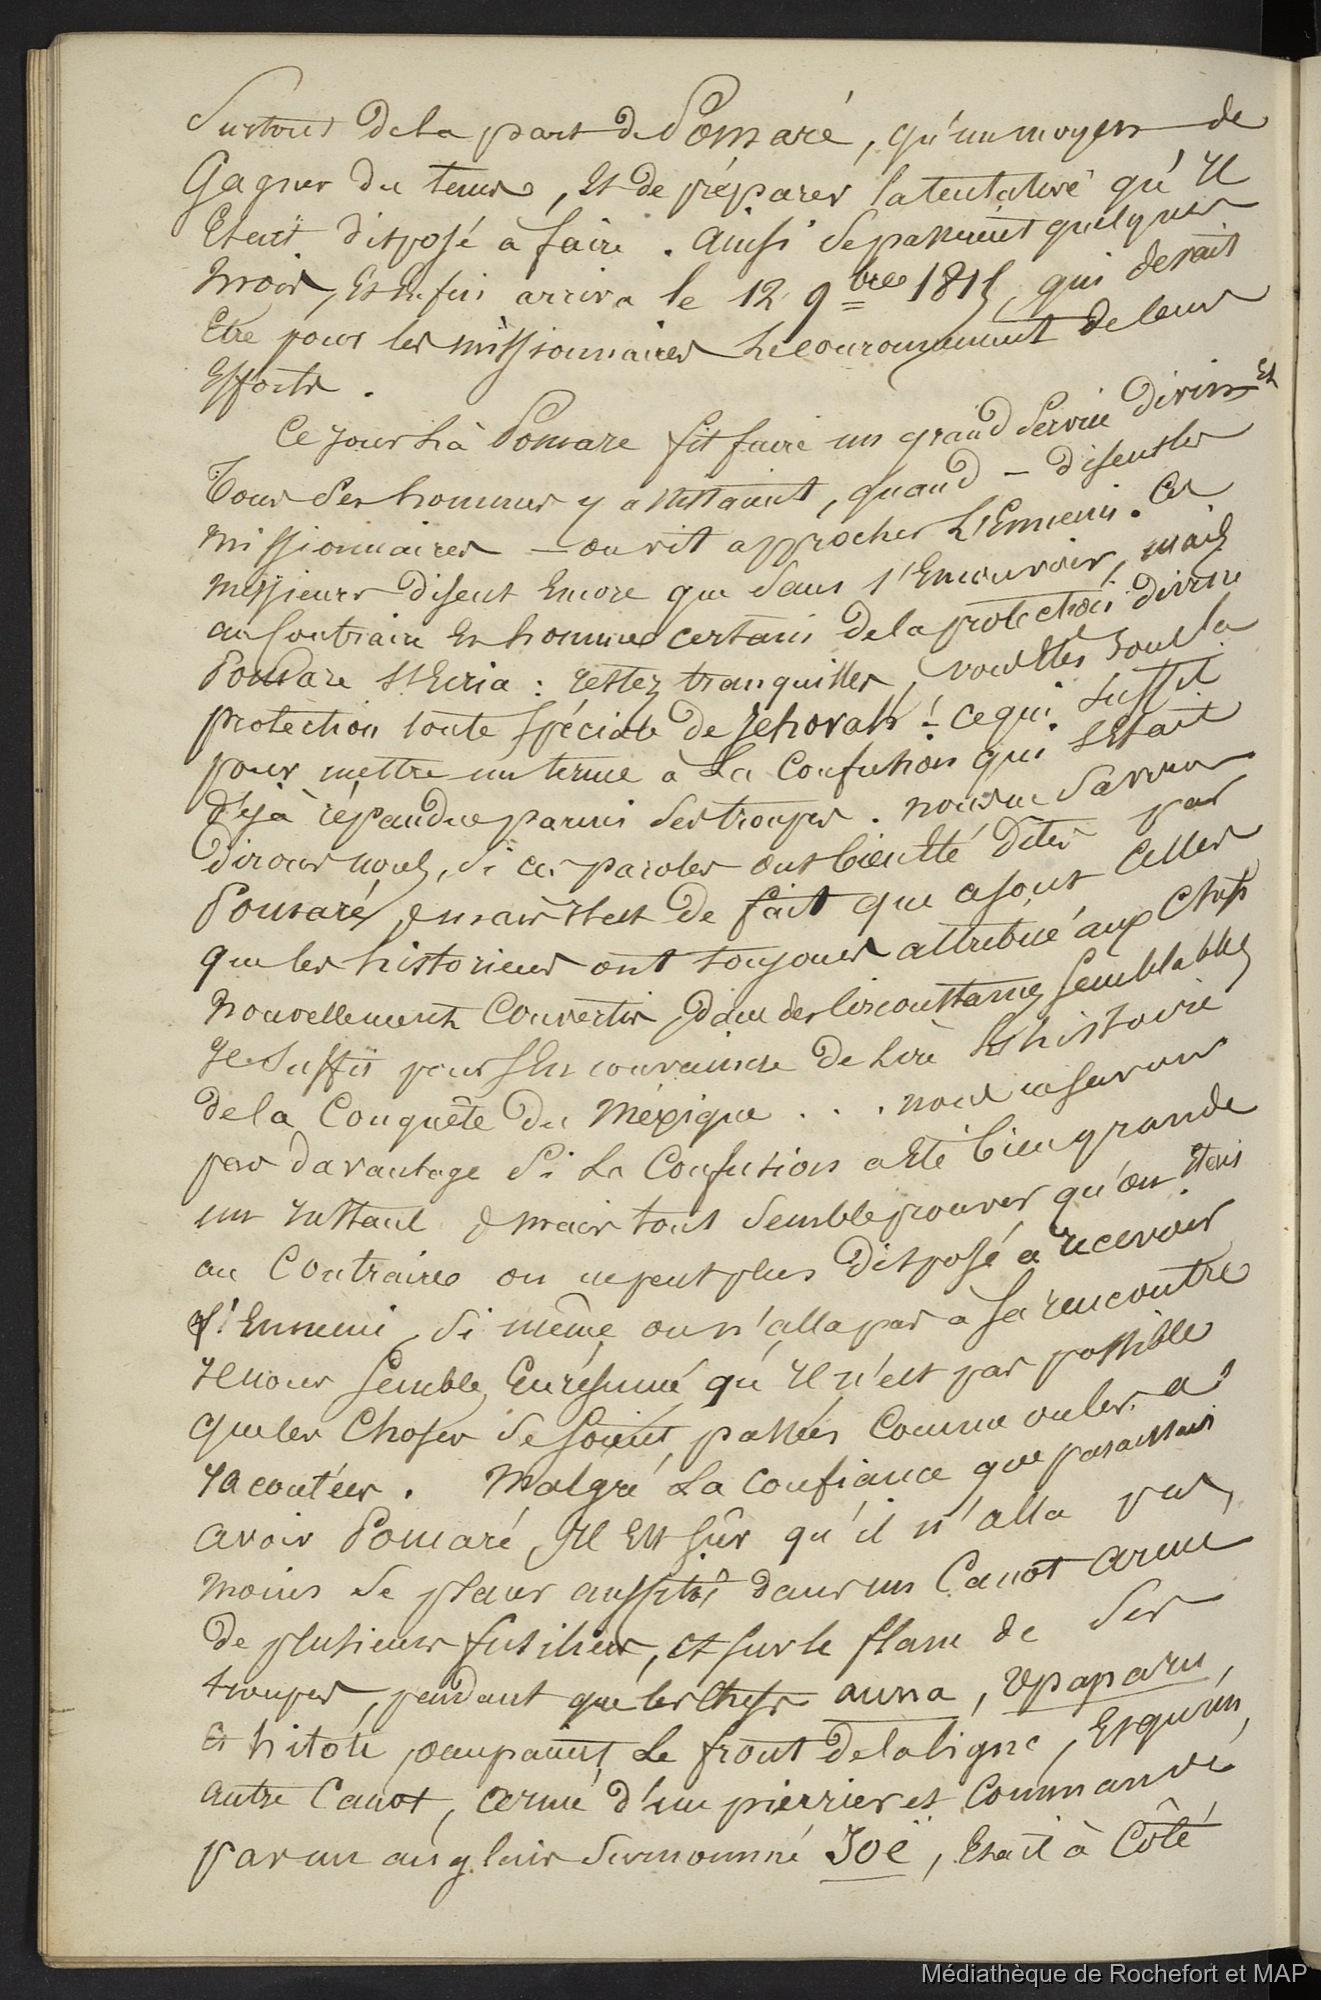 Surtout de la part de Pomaré, qu'un moyen de
Gagner du tems, Et de préparer la tentative qu'Il
Etait disposé à faire. Ainsi se passaient quelques
mois, Et enfin arriva le 12 9bre 1815, qui devait
Etre pour les missionnaires Le couronnement de leurs
Efforts.
Ce jour Là Pomare fit faire un grand Service divin Et
Tous Ses hommes y assistaient, quand – disent les
missionnaires – on vit approcher L'Ennemi. Ces
messieurs disent Encore que Sans s'Emouvoir, mais
au Contraire En homme certain de la protection divine
Pomare s'Ecria : restez tranquilles, vous Etes Sous la
protection toute Spéciale de Jehovah ! – ce qui Suffit
pour mettre un terme à La Confusion qui s'Etait
déjà répandue parmi Ses troupes. nous ne Savons
dirons nous, Si ces paroles ont bien Eté dites par
Pomaré, mais Il est de fait que ce sont Celles
que les historiens ont toujours attribué aux Chefs
nouvellement Convertis, dans des Circonstances Semblables
Il Suffit pour S'En convaincre de Lire L'histoire
de la Conquête du Méxique . . . nous ne savons
pas davantage Si La Confusion a Eté bien grande
un Instant, mais tout Semble prouver qu'on Etait
au Contraire on ne peut plus disposé à recevoir
l'Ennemi, Si même on n'alla pas à Sa rencontre
Il nous Semble, En résumé qu'Il n'est pas possible
que les Choses Se Soient passées Comme on les a
racontées. Malgré La Confiance que paraissait
avoir Pomaré, Il Est Sûr qu'il n'alla pas,
moins Se placer aussitôt dans un Canot armé
de plusieurs fusiliers, et sur le flanc de Ses
troupes, pendant que les Chefs auna, Upaparu,
Et hitoti, occupaient Le front de la ligne, Et qu'un
autre Canot, armé d'un pierrier et Commandé
par un anglais Surnommé Joë, Etait à Côté
Médiathèque de Rochefort et MAP